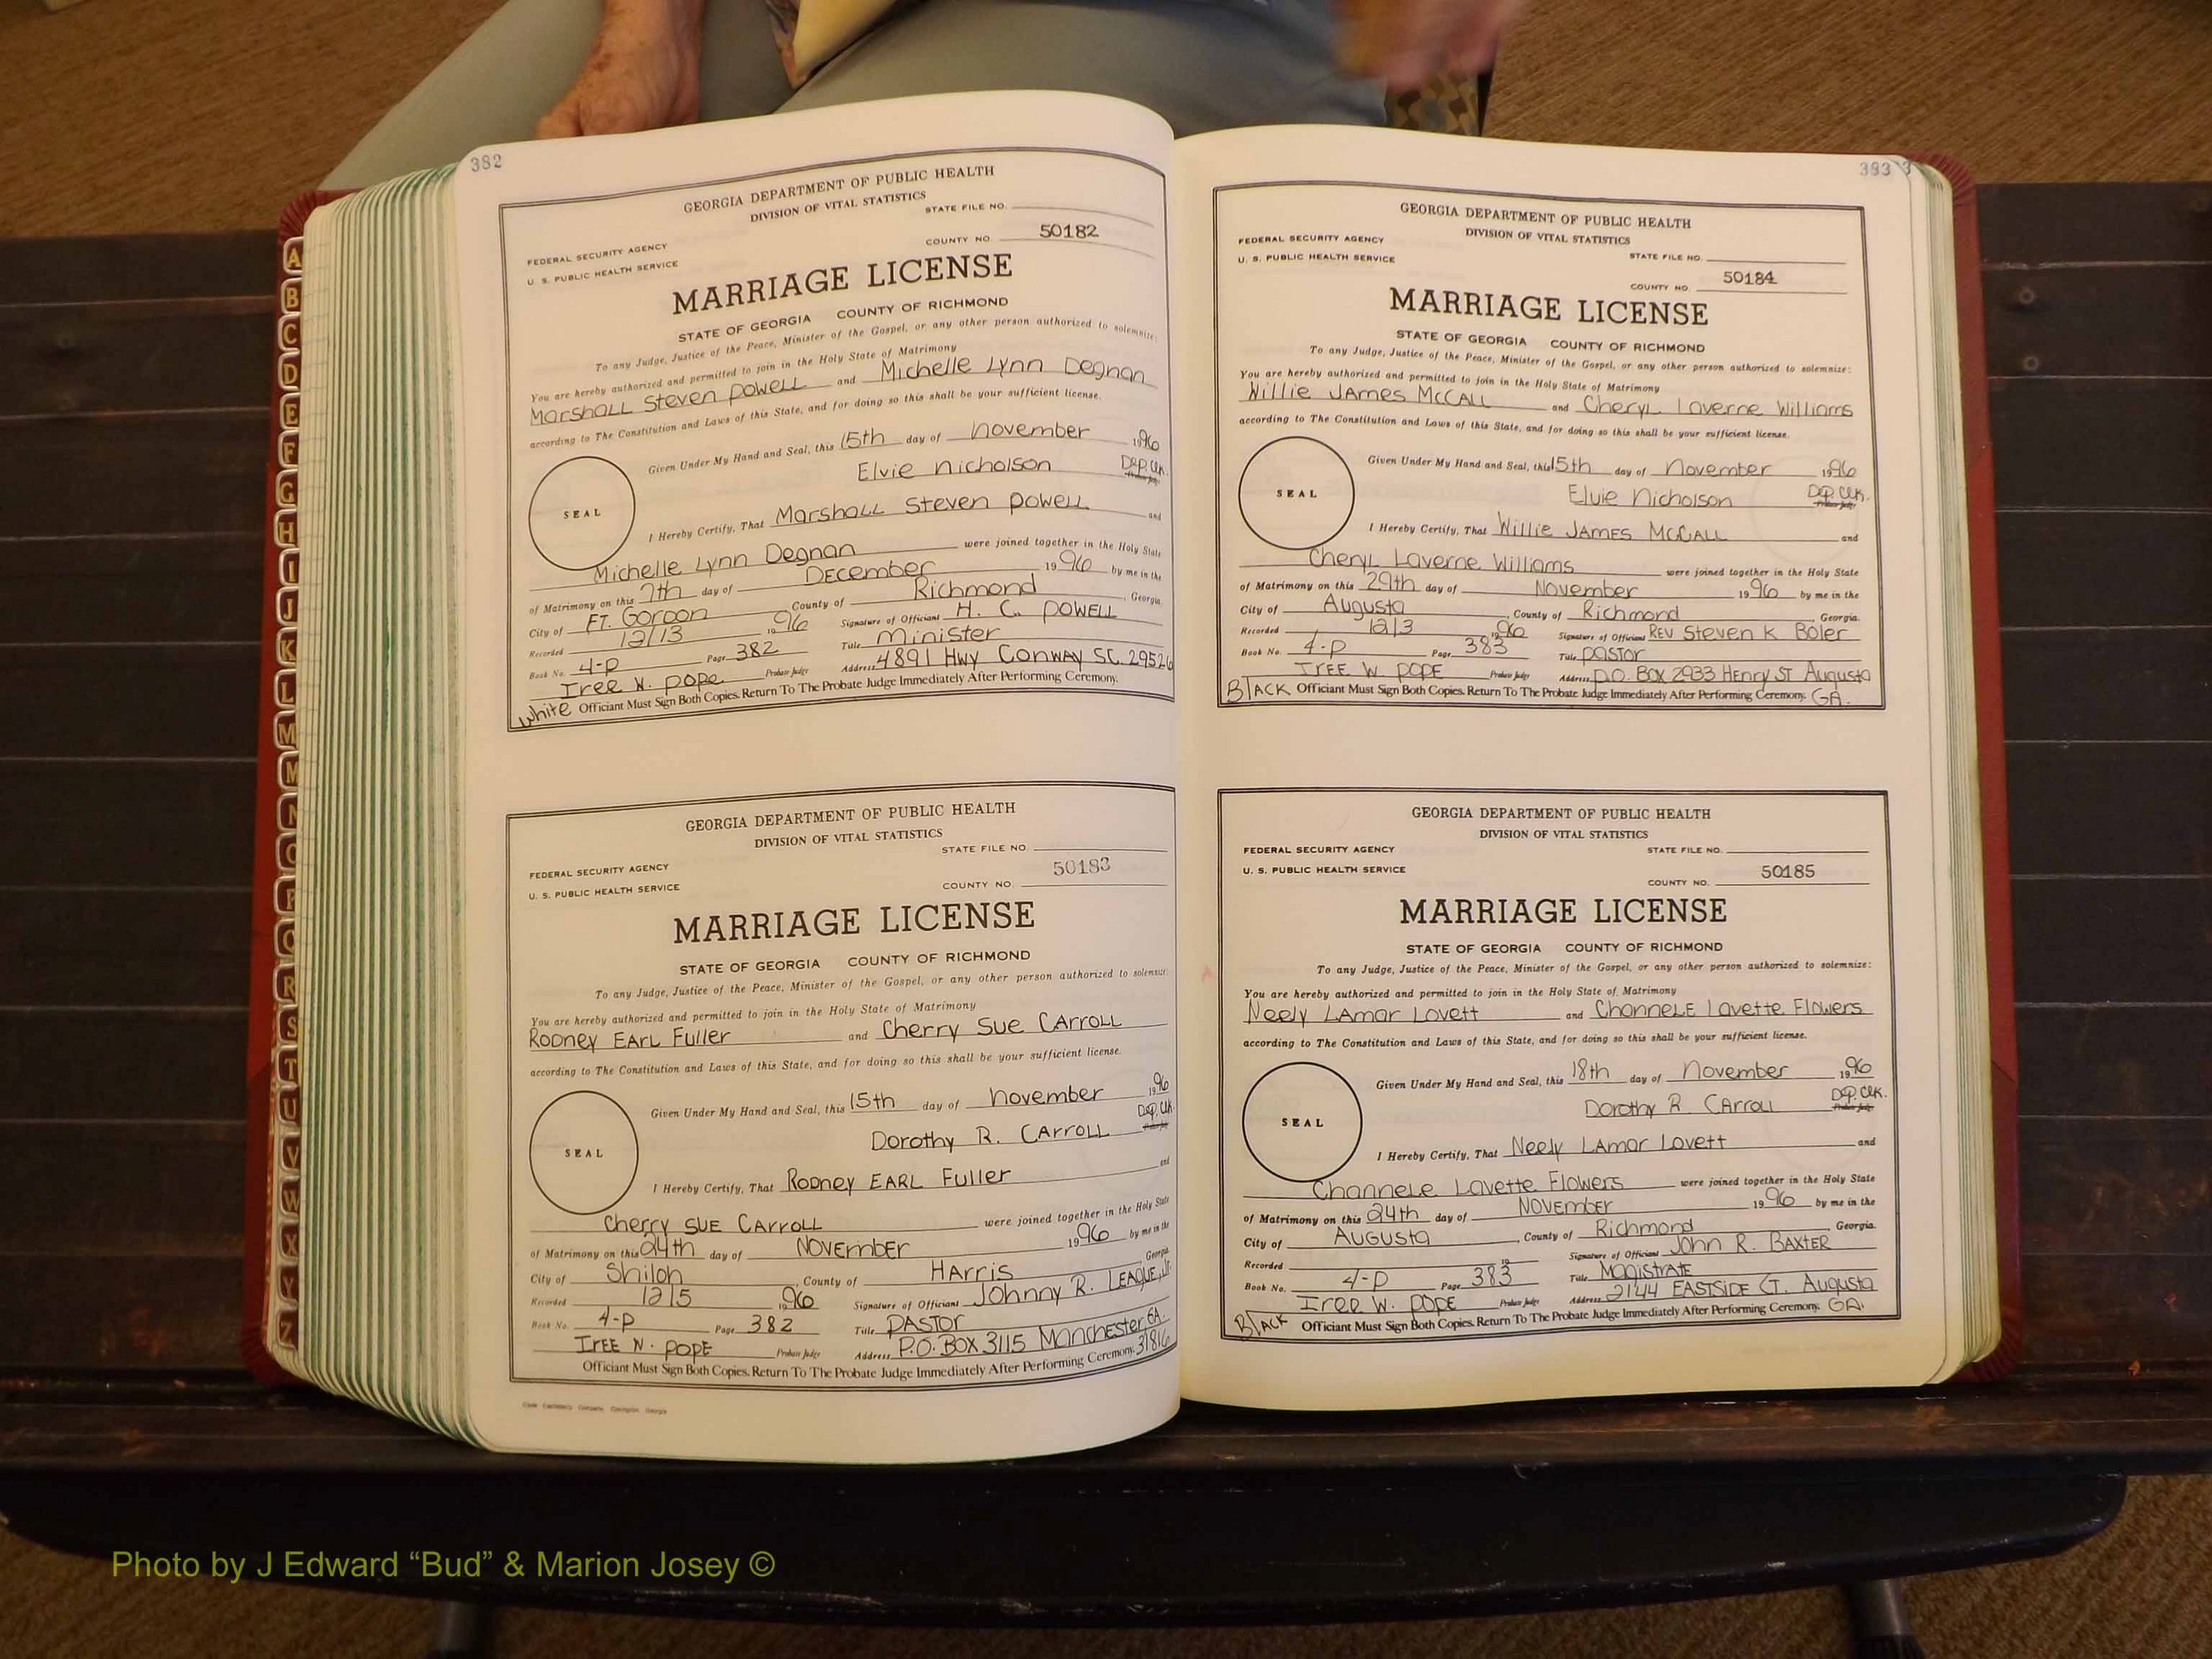 382
GEORGIA DEPARTMENT OF PUBLIC HEALTH
DIVISION OF VITAL STATISTICS
STATE FILE NO.
FEDERAL SECURITY AGENCY
COUNTY NO. 50182
U. S. PUBLIC HEALTH SERVICE
MARRIAGE LICENSE
STATE OF GEORGIA COUNTY OF RICHMOND
To any Judge, Justice of the Peace, Minister of the Gospel, or any other person authorized to solemnize:
You are hereby authorized and permitted to join in the Holy State of Matrimony
Marshall Steven Powell and Michelle Lynn Degnan
according to The Constitution and Laws of this State, and for doing so this shall be your sufficient license.
Given Under My Hand and Seal, this 15th day of November 1996
Elvie Nicholson Dep. Clk.
SEAL
I Hereby Certify, That Marshall Steven Powell and
Michelle Lynn Degnan were joined together in the Holy State
of Matrimony on this 7th day of December 1996 by me in the
City of Ft. Gordon County of Richmond, Georgia.
Recorded 12/13 1996 Signature of Officiant H. C. Powell
Book No. 4-P Page 382 Title Minister
Iree W. Pope Probate Judge Address 4891 Hwy Conway SC. 29526
White Officiant Must Sign Both Copies. Return To The Probate Judge Immediately After Performing Ceremony.
GEORGIA DEPARTMENT OF PUBLIC HEALTH
DIVISION OF VITAL STATISTICS
STATE FILE NO.
FEDERAL SECURITY AGENCY
COUNTY NO. 50183
U. S. PUBLIC HEALTH SERVICE
MARRIAGE LICENSE
STATE OF GEORGIA COUNTY OF RICHMOND
To any Judge, Justice of the Peace, Minister of the Gospel, or any other person authorized to solemnize:
You are hereby authorized and permitted to join in the Holy State of Matrimony
Rodney Earl Fuller and Cherry Sue Carroll
according to The Constitution and Laws of this State, and for doing so this shall be your sufficient license.
Given Under My Hand and Seal, this 15th day of November 1996
Dorothy R. Carroll Dep. Clk.
SEAL
I Hereby Certify, That Rodney Earl Fuller and
Cherry Sue Carroll were joined together in the Holy State
of Matrimony on this 24th day of November 1996 by me in the
City of Shiloh, County of Harris Georgia
Recorded 12/5 1996 Signature of Officiant Johnny R. League, Jr.
Book No. 4-P Page 382 Title Pastor
Iree W. Pope Probate Judge Address P.O. Box 3115 Manchester GA. 31816
Officiant Must Sign Both Copies. Return To The Probate Judge Immediately After Performing Ceremony.
383
GEORGIA DEPARTMENT OF PUBLIC HEALTH
DIVISION OF VITAL STATISTICS
FEDERAL SECURITY AGENCY
STATE FILE NO.
U. S. PUBLIC HEALTH SERVICE
COUNTY NO. 50184
MARRIAGE LICENSE
STATE OF GEORGIA COUNTY OF RICHMOND
To any Judge, Justice of the Peace, Minister of the Gospel, or any other person authorized to solemnize:
You are hereby authorized and permitted to join in the Holy State of Matrimony
Willie James McCall and Cheryl Laverne Williams
according to The Constitution and Laws of this State, and for doing so this shall be your sufficient license.
Given Under My Hand and Seal, this 15th day of November 1996
Elvie Nicholson Dep. Clk.
SEAL
I Hereby Certify, That Willie James McCall and
Cheryl Laverne Williams were joined together in the Holy State
of Matrimony on this 29th day of November 1996 by me in the
City of Augusta, County of Richmond Georgia.
Recorded 12/3 1996 Signature of Officiant Rev Steven K Boler
Book No. 4-P Page 383 Title Pastor
Iree W. Pope Probate Judge Address P.O. Box 2933 Henry St Augusta
Black Officiant Must Sign Both Copies. Return To The Probate Judge Immediately After Performing Ceremony. GA.
GEORGIA DEPARTMENT OF PUBLIC HEALTH
DIVISION OF VITAL STATISTICS
FEDERAL SECURITY AGENCY
STATE FILE NO.
U. S. PUBLIC HEALTH SERVICE
COUNTY NO. 50185
MARRIAGE LICENSE
STATE OF GEORGIA COUNTY OF RICHMOND
To any Judge, Justice of the Peace, Minister of the Gospel, or any other person authorized to solemnize:
You are hereby authorized and permitted to join in the Holy State of Matrimony
Neely Lamar Lovett and Channele Lavette Flowers
according to The Constitution and Laws of this State, and for doing so this shall be your sufficient license.
Given Under My Hand and Seal, this 18th day of November 1996
Dorothy R. Carroll Dep. Clk.
SEAL
I Hereby Certify, That Neely Lamar Lovett and
Channele Lavette Flowers were joined together in the Holy State
of Matrimony on this 24th day of November 1996 by me in the
City of Augusta, County of Richmond, Georgia.
Recorded 19 Signature of Officiant John R. Baxter
Book No. 4-P Page 383 Title Magistrate
Iree W. Pope Probate Judge Address 2144 Eastside Ct. Augusta
Black Officiant Must Sign Both Copies. Return To The Probate Judge Immediately After Performing Ceremony. GA.
A
B
C
D
E
F
G
H
I
J
K
L
M
M
N
O
P
Q
R
S
T
U
V
W
X
Y
Z
Photo by J Edward “Bud” & Marion Josey ©